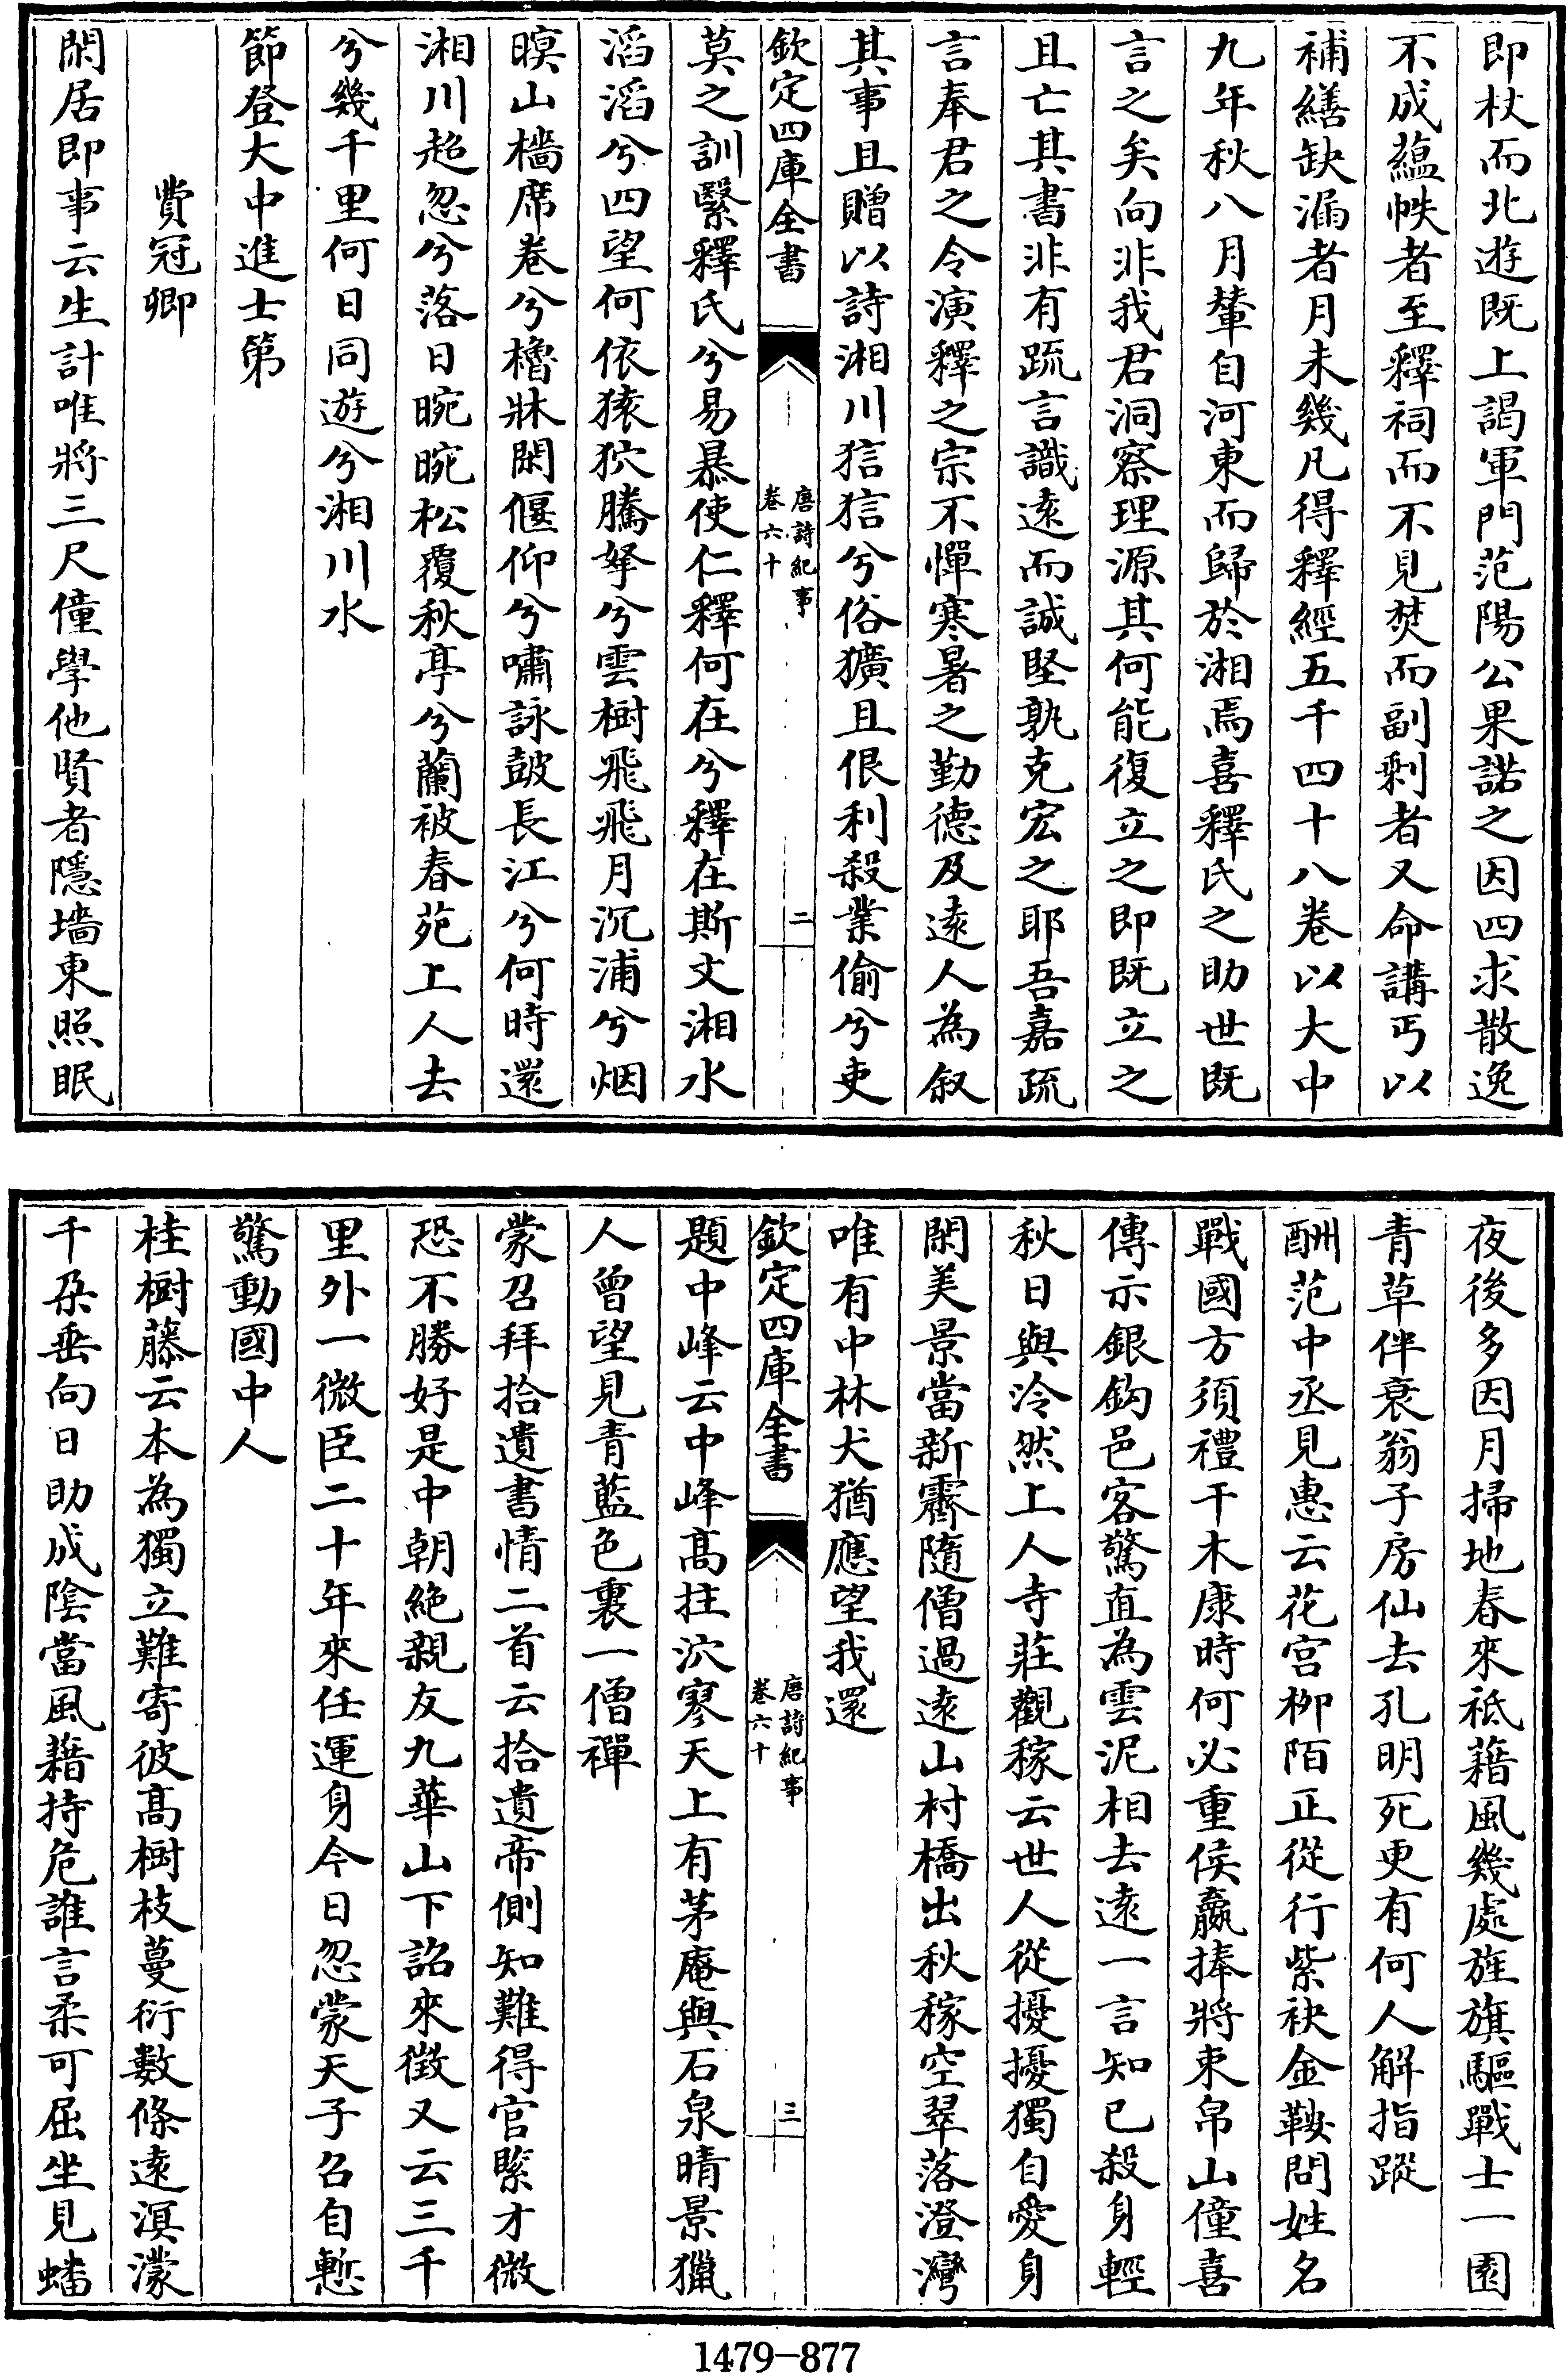 即杖而北遊既上謁軍門范陽公果諾之因四求散逸
不成蘊帙者至釋祠而不見焚而副剩者又命講丐以
補繕缺漏者月未幾凡得釋經五千四十八卷以大中
九年秋八月輦自河東而歸於湘焉喜釋氏之助世既
言之矣向非我君洞察理源其何能復立之即既立之
且亡其書非有疏言識遠而誠堅孰克宏之耶吾嘉疏
言奉君之令演釋之宗不憚寒暑之勤德及遠人為叙
其事且贈以詩湘川狺狺兮俗獷且佷利殺業偷兮吏
欽定四庫全書
唐詩紀事
卷六十
二
莫之訓繄釋氏兮易暴使仁釋何在兮釋在斯文湘水
滔滔兮四望何依猿狖騰拏兮雲樹飛飛月沉浦兮烟
暝山檣席卷兮櫓牀閑偃仰兮嘯詠鼓長江兮何時還
湘川超忽兮落日晼晼松覆秋亭兮蘭被春苑上人去
兮幾千里何日同遊兮湘川水
節登大中進士第
費冠卿
閑居即事云生計唯將三尺僮學他賢者隱墻東照眠
夜後多因月掃地春來秪藉風幾處旌旗驅戰士一園
青草伴衰翁子房仙去孔明死更有何人解指蹤
酬范中丞見惠云花宫栁陌正從行紫袂金鞍問姓名
戰國方須禮干木康時何必重侯嬴捧將束帛山僮喜
傳示銀鈎邑客驚直為雲泥相去遠一言知己殺身輕
秋日與泠然上人寺莊觀稼云世人從擾擾獨自愛身
閑美景當新霽隨僧過遠山村橋出秋稼空翠落澄灣
唯有中林犬猶應望我還
欽定四庫全書
唐詩紀事
卷六十
三
題中峰云中峰髙拄泬寥天上有茅庵與石泉晴景獵
人曾望見青藍色裏一僧禪
蒙召拜拾遺書情二首云拾遺帝側知難得官緊才微
恐不勝好是中朝絶親友九華山下詔來徵又云三千
里外一微臣二十年來任運身今日忽蒙天子召自慙
驚動國中人
桂樹藤云本為獨立難寄彼髙樹枝蔓衍數條遠溟濛
千朶垂向日助成陰當風藉持危誰言柔可屈坐見蟠
1479-877